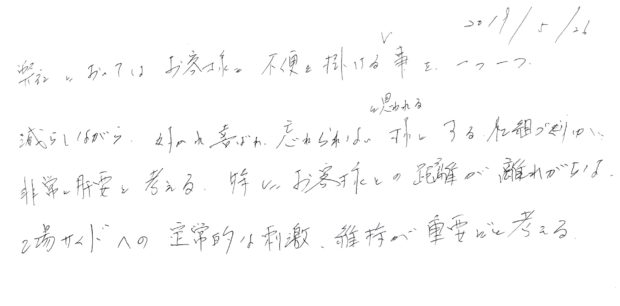 2019/5/26
弊社においてはお客様に不便を掛ける事を、一つ一つ、
と思われる
減らしながら、対外的に喜ばれ、忘れられない様にする仕組づくりが、
非常に肝要と考える。特に、お客様との距離が離れがちな、
工場サイドへの定常的な刺激、維持が重要だと考える。